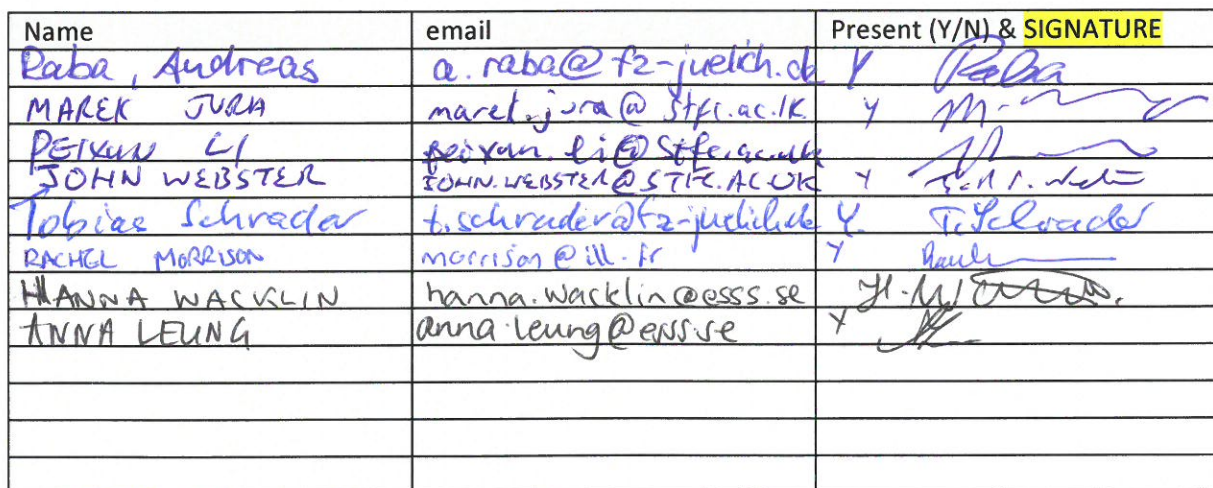 Name email Present (Y/N) & SIGNATURE
Raba, Andreas a.raba@fz-juelich.de Y Raba
MAREK JURA marek.jura@stfc.ac.uk Y
PEIXUN LI peixun.li@stfc.ac.uk
JOHN WEBSTER JOHN.WEBSTER@STFC.AC.UK Y
Tobias Schrader t.schrader@fz-juelich.de Y. T. Schrader
RACHEL MORRISON morrison@ill.fr Y
HANNA WACKLIN hanna.wacklin@esss.se
ANNA LEUNG anna.leung@esss.se Y